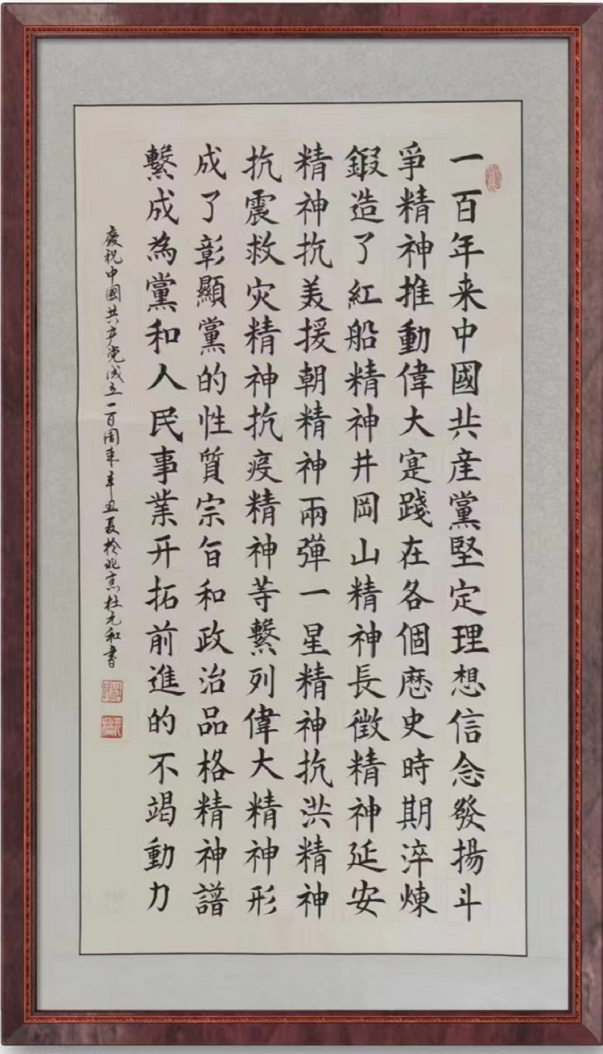 一百年来中國共産黨堅定理想信念發揚斗
爭精神推動偉大寔踐在各個歷史時期淬煉
鍛造了紅船精神井岡山精神長徵精神延安
精神抗美援朝精神兩彈一星精神抗洪精神
抗震救灾精神抗疫精神等繫列偉大精神形
成了彰顯黨的性質宗旨和政治品格精神譜
繫成為黨和人民事業开拓前進的不竭動力
慶祝中國共产党成立一百周年辛丑夏於北京杜元和書